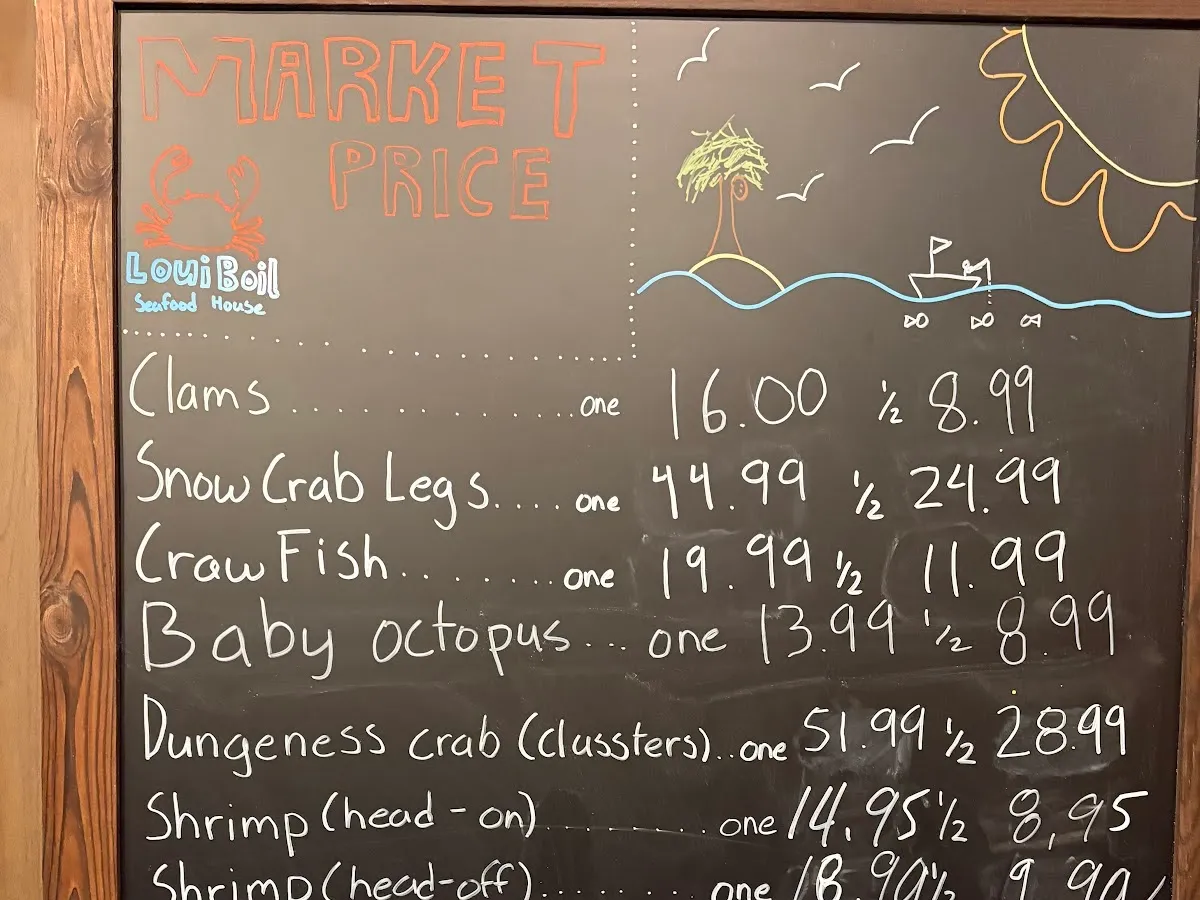 MARKET
PRICE
Loui Boil
Seafood House
Clams .............. one 16.00 ½ 8.99
Snow Crab Legs..... one 44.99 ½ 24.99
Craw Fish........ one 19.99 ½ 11.99
Baby octopus... one 13.99 ½ 8.99
Dungeness crab (classters)..one 51.99 ½ 28.99
Shrimp (head-on)......... one 14.95 ½ 8,95
Shrimp (head-off)....... one ½